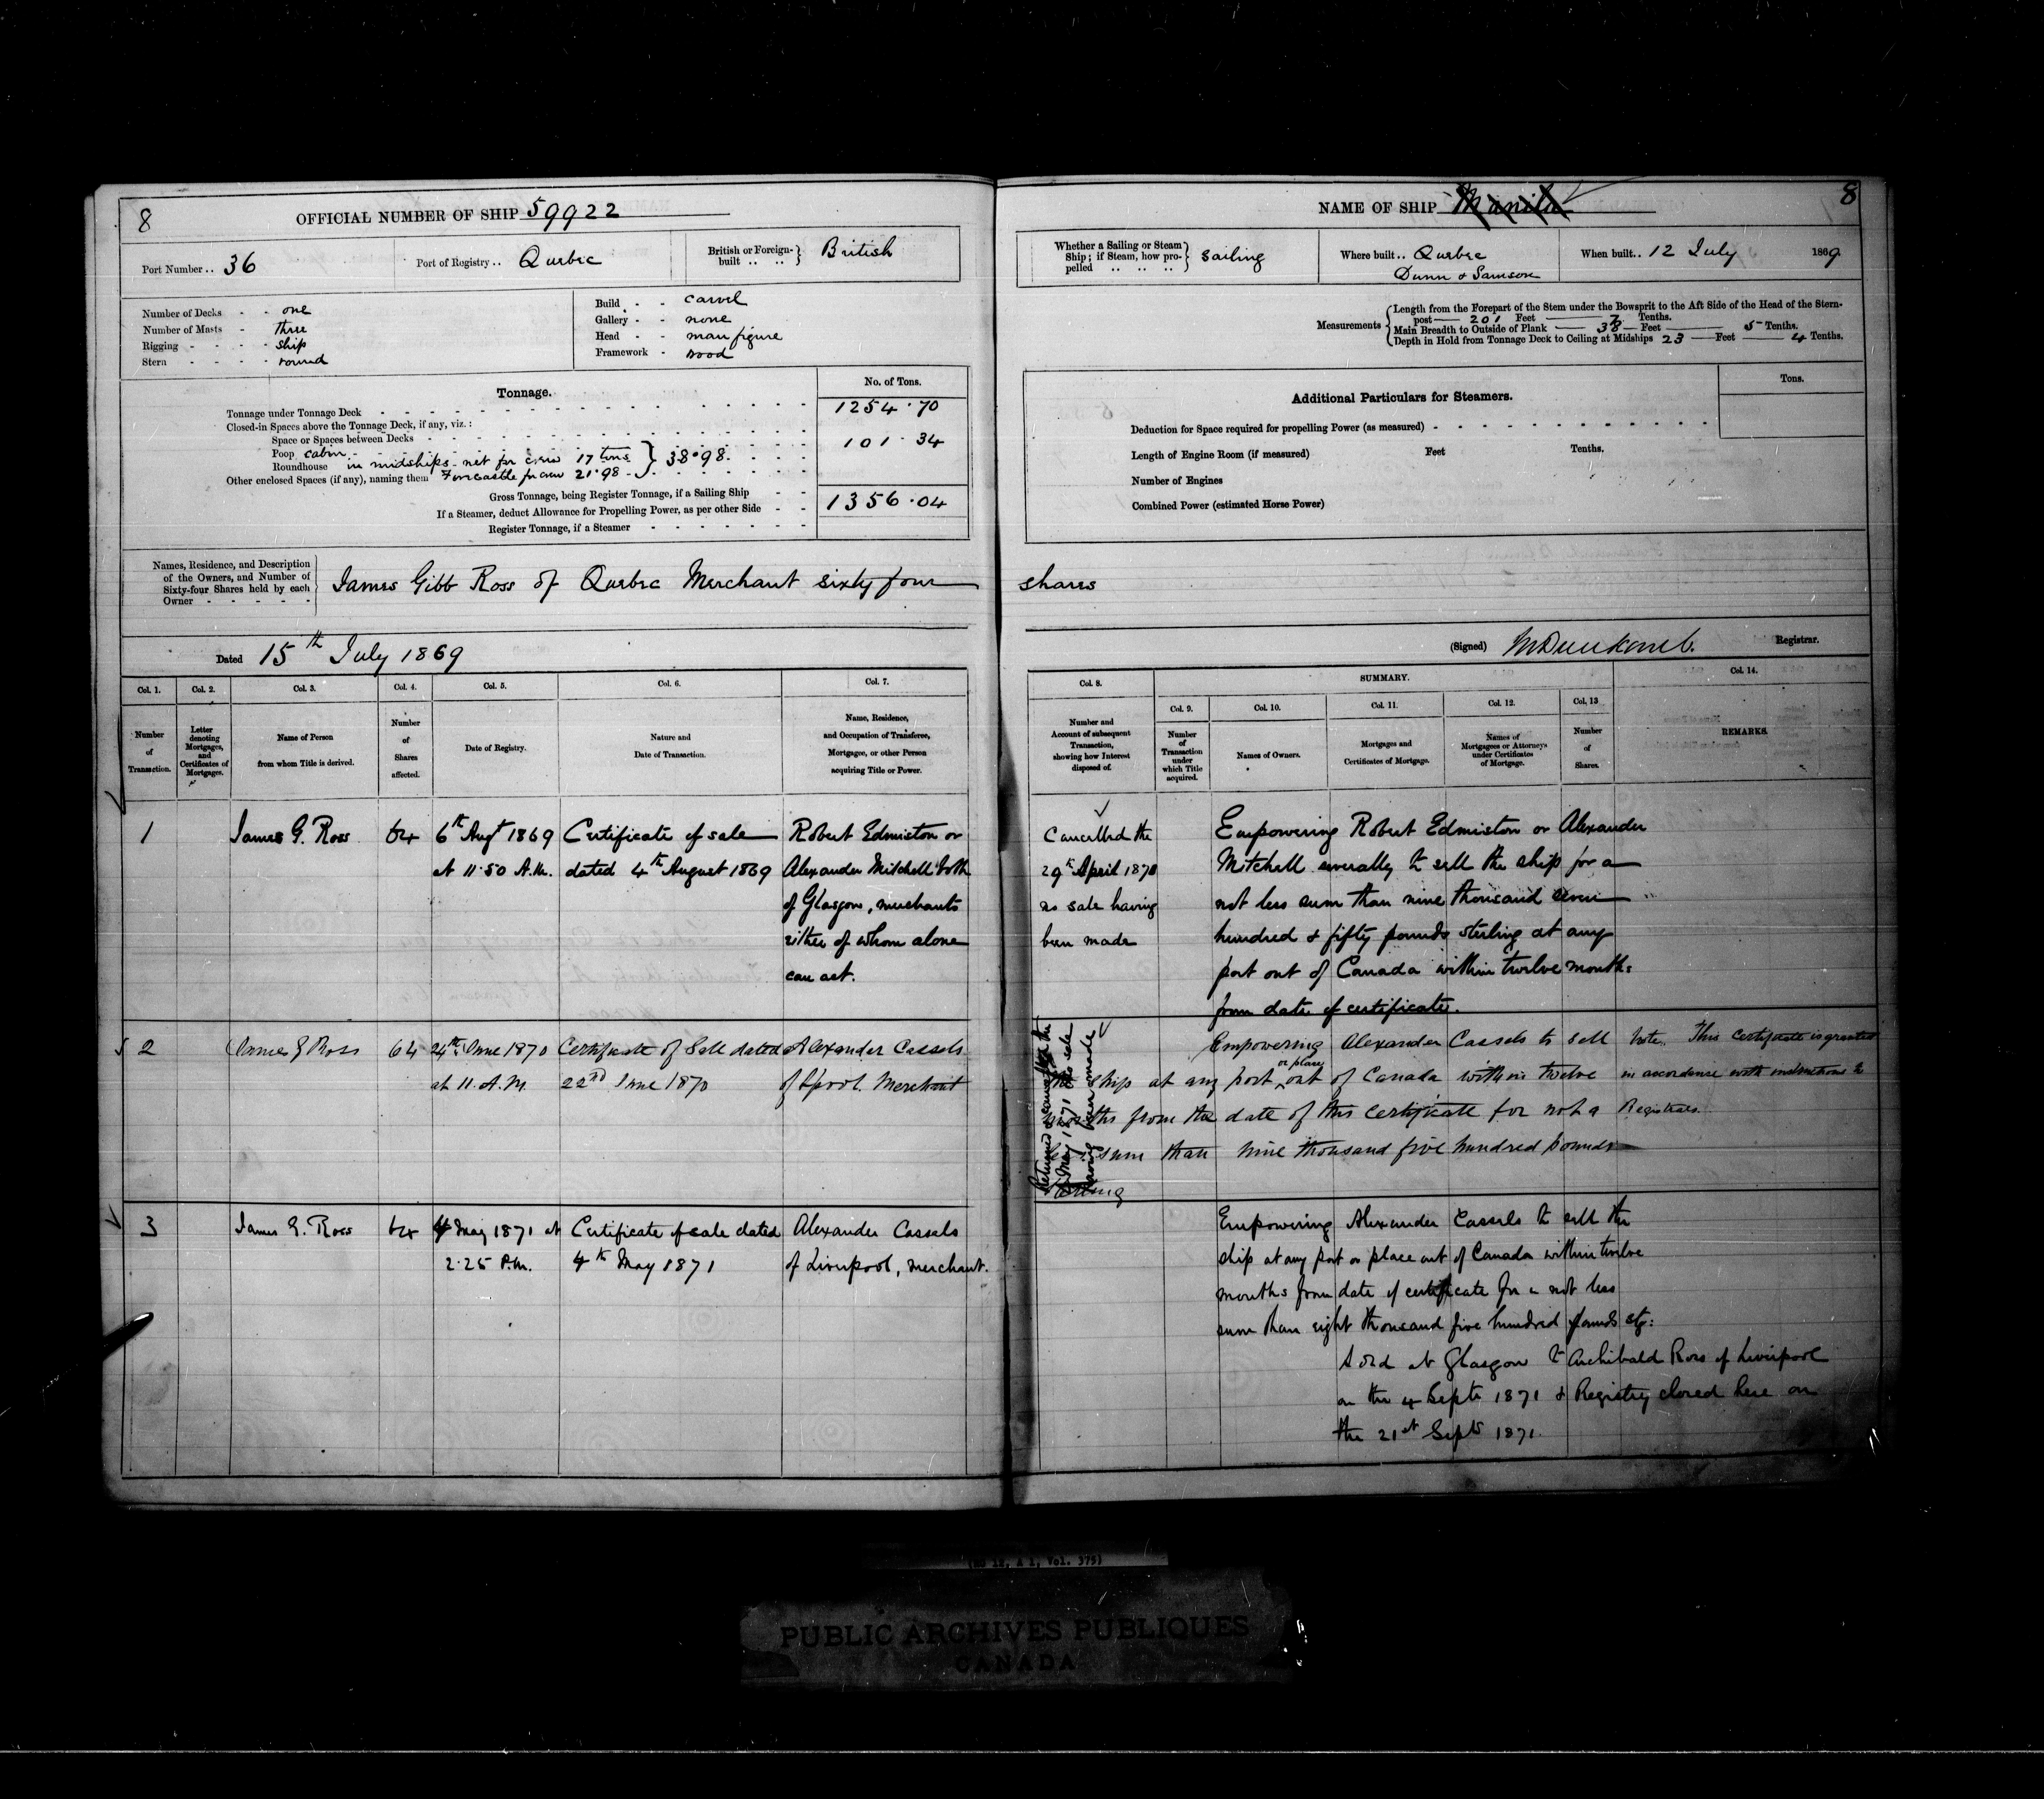 8
OFFICIAL NUMBER OF SHIP 59922
Port Number .. 36
Port of Registry .. Quebec
British or Foreign-built .. .. } British
Number of Decks - - one
Number of Masts - three
Rigging - - - - ship
Stern - - - - round
Build - - carvel
Gallery - - none
Head - - man figure
Framework - wood
Tonnage.
No. of Tons.
Tonnage under Tonnage Deck 1254.70
Closed-in Spaces above the Tonnage Deck, if any, viz.:
Space or Spaces between Decks
Poop cabin 101.34
Roundhouse in midships - net for crew 17 tons } 38.98
Other enclosed Spaces (if any), naming them Forecastle for crew 21.98
Gross Tonnage, being Register Tonnage, if a Sailing Ship 1356.04
If a Steamer, deduct Allowance for Propelling Power, as per other Side
Register Tonnage, if a Steamer
Names, Residence, and Description
of the Owners, and Number of
Sixty-four Shares held by each
Owner
James Gibb Ross of Quebec Merchant sixty four
Dated 15th July 1869
Col. 1. Col. 2. Col. 3. Col. 4. Col. 5. Col. 6. Col. 7.
Number of Transaction.
Letter denoting Mortgages, and Certificates of Mortgage.
Name of Person from whom Title is derived.
Number of Shares affected.
Date of Registry.
Nature and Date of Transaction.
Name, Residence, and Occupation of Transferee, Mortgagee, or other Person acquiring Title or Power.
1 James G. Ross 64 6th Augt 1869 Certificate of sale Robert Edmiston or
at 11.50 A.M. dated 4th August 1869 Alexander Mitchell both
of Glasgow, merchants
either of whom alone
can act.
2 James G Ross 64 24th June 1870 Certificate of Sale dated Alexander Cassels
at 11. A.M. 22nd June 1870 of Lpool. Merchant
3 James G. Ross 64 4 May 1871 at Certificate of sale dated Alexander Cassels
2.25 P.M. 4th May 1871 of Liverpool, merchant.
NAME OF SHIP Manila
8
Whether a Sailing or Steam Ship; if Steam, how propelled .. .. .. } Sailing
Where built .. Quebec
Dunn & Samson
When built .. 12 July 1869
Measurements
Length from the Forepart of the Stem under the Bowsprit to the Aft Side of the Head of the Stern-
post 201 Feet 7 Tenths.
Main Breadth to Outside of Plank 38 Feet 5 Tenths.
Depth in Hold from Tonnage Deck to Ceiling at Midships 23 Feet 4 Tenths.
Additional Particulars for Steamers.
Tons.
Deduction for Space required for propelling Power (as measured)
Length of Engine Room (if measured) Feet Tenths.
Number of Engines
Combined Power (estimated Horse Power)
shares
(Signed) Registrar.
Col. 8. SUMMARY. Col. 14.
Col. 9. Col. 10. Col. 11. Col. 12. Col. 13
Number and Account of subsequent Transaction, showing how Interest disposed of.
Number of Transaction under which Title acquired.
Names of Owners.
Mortgages and Certificates of Mortgage.
Names of Mortgagees or Attorneys under Certificates of Mortgage.
Number of Shares.
REMARKS.
Cancelled the
29th April 1870
no sale having
been made
Empowering Robert Edmiston or Alexander
Mitchell severally to sell the ship for a
not less sum than nine thousand seven
hundred & fifty pounds sterling at any
port out of Canada within twelve months
from date of certificate.
May 1871 no sale
having been made
Empowering Alexander Cassels to sell
the ship at any port or place out of Canada within twelve
months from the date of this certificate for not a
less sum than nine thousand five hundred pounds
Sterling
Note. This certificate is granted
in accordance with instructions to
Registrars.
Empowering Alexander Cassels to sell the
ship at any port or place out of Canada within twelve
months from date of certificate for a not less
sum than eight thousand five hundred pounds stg:
Sold at Glasgow to Archibald Ross of Liverpool
on the 4 Septr 1871 & Registry closed here on
the 21st Septr 1871.
Vol. 375)
PUBLIC ARCHIVES PUBLIQUES
CANADA